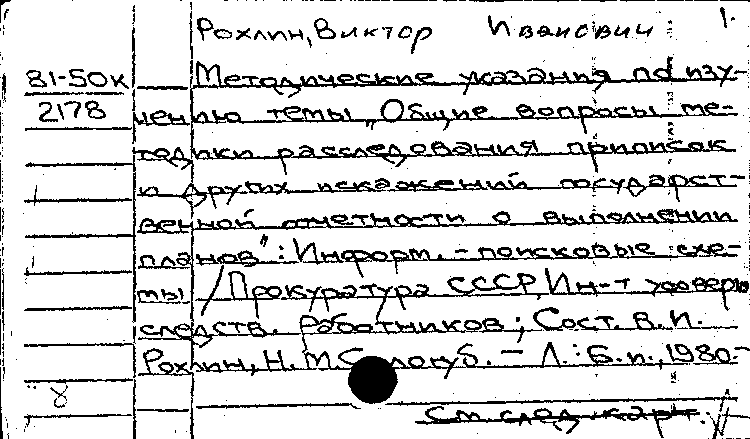 1.
Рохлин, Виктор Иванович
81-50к Методические указания по изу-
2178 чению темы „Общие вопросы ме-
тодики расследования приписок
и других искажений государст-
венной отчетности о выполнении
планов": Информ.-поисковые схе-
мы / Прокуратура СССР, Ин-т усоверш
следств. работников; Сост. В. И.
Рохлин, Н. М. Сологуб. - Л.: Б. и., 1980.-
8
См. след. карт.